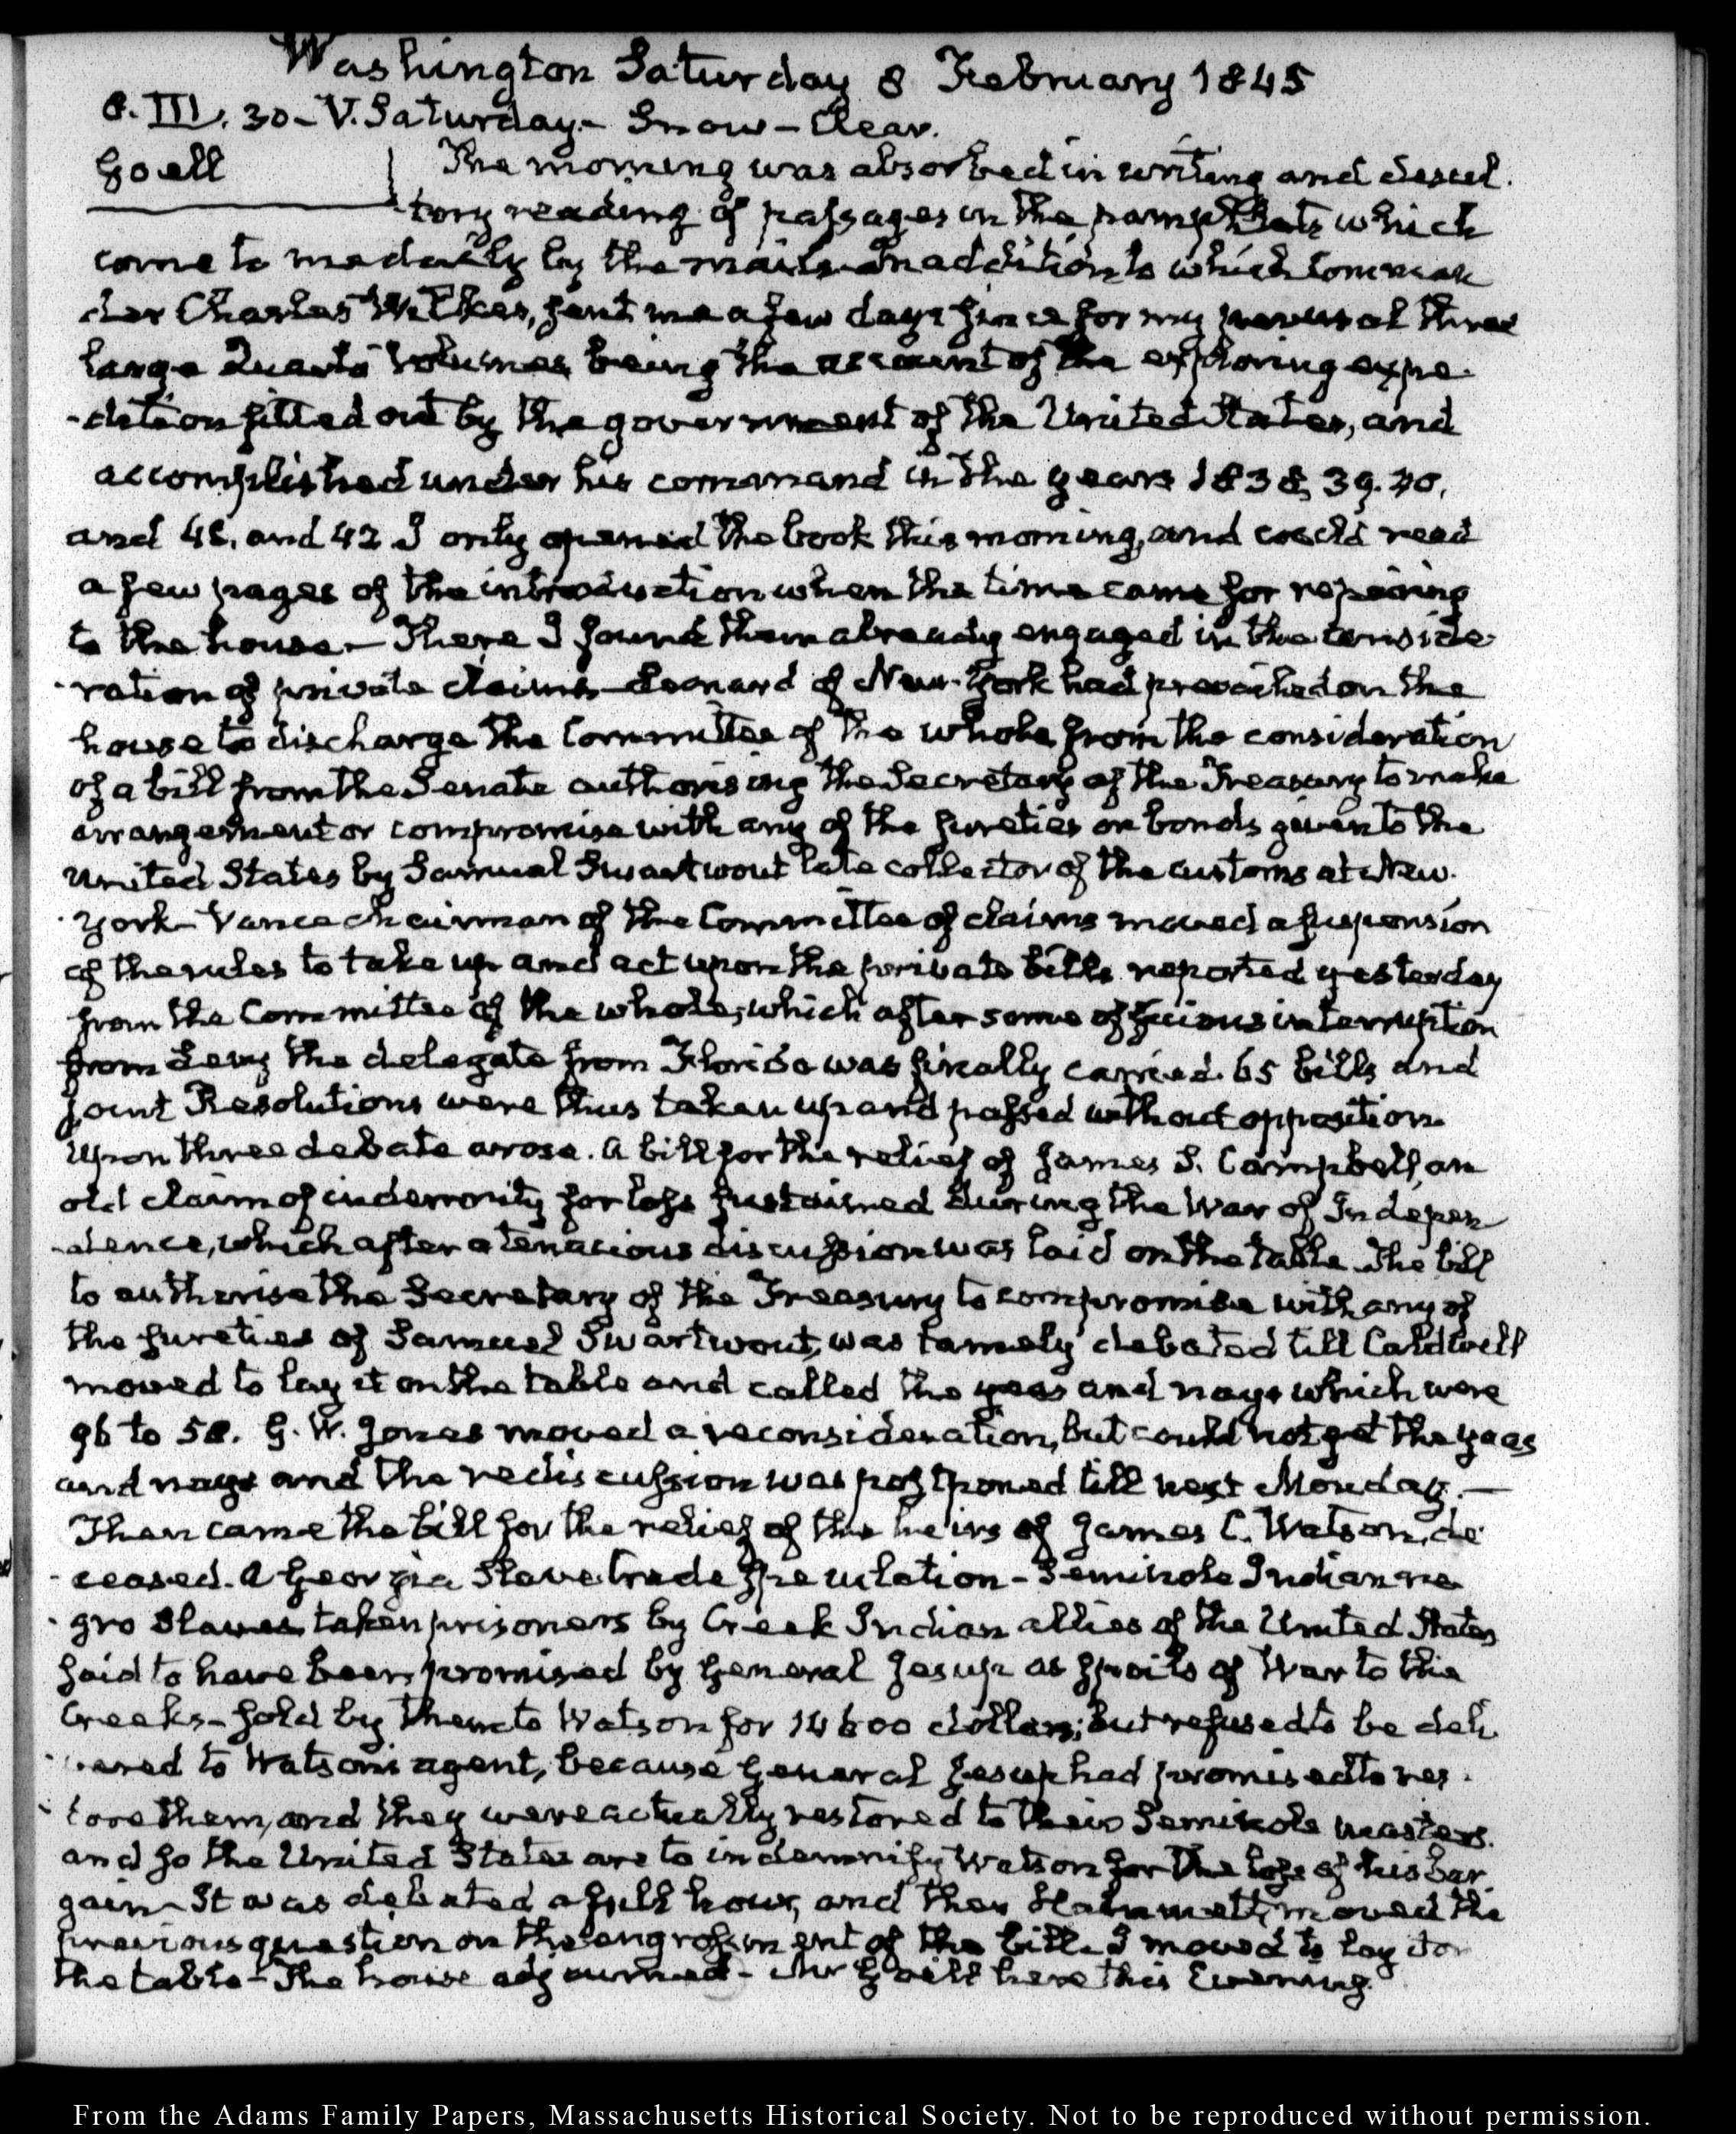 Washington Saturday 8 February 1845
8. III. 30 - V. Saturday. - Snow - Clear.
Goell
The morning was absorbed in writing and desul-
-tory reading of passages in the pamphlets which
come to me daily by the mails. In addition to which Comman
der Charles Wilkes, sent me a few days since for my perusal three
large Quarto volumes being the account of the exploring expe-
-dition fitted out by the government of the United States, and
accomplished under his command in the years 1838, 39. 40.
and 41. and 42 I only opened the book this morning, and could read
a few pages of the introduction when the time came for repairing
to the house - There I found them already engaged in the conside
-ration of private claims - Leonard of New-York had prevailed on the
house to discharge the Committee of the whole from the consideration
of a bill from the Senate authorising the Secretary of the Treasury to make
arrangement or compromise with any of the sureties on bonds given to the
United States by Samuel Swartwout late collector of the customs at New-
-York - Vance chairman of the Committee of claims moved a suspension
of the rules to take up and act upon the private bills reported yesterday
from the Committee of the whole; which after some officious interruption
from Levy the delegate from Florida was finally carried. 65 bills and
joint Resolutions were thus taken up and passed without opposition.
Upon three debate arose. A bill for the relief of James S. Campbell, an
old claim of indemnity for loss sustained during the War of Indepen
-dence, which after a tenacious discussion was laid on the table. The bill
to authorise the Secretary of the Treasury to compromise with any of
the sureties of Samuel Swartwout, was tamely debated till Caldwell
moved to lay it on the table and called the yeas and nays which were
96 to 58. G. W. Jones moved a reconsideration, but could not get the yeas
and nays and the rediscussion was postponed till next Monday. —
Then came the bill for the relief of the heirs of James C. Watson, de
-ceased. A Georgia Slave trade speculation - Seminole Indian ne
-gro Slaves taken prisoners by Creek Indian allies of the United States
said to have been promised by General Jesup as spoils of War to the
Creeks - sold by them to Watson for 14600 dollars; but refused to be deli
-vered to Watson's agent, because General Jesup had promised to res-
-tore them, and they were actually restored to their Seminole masters.
and so the United States are to indemnify Watson for the loss of his bar
gain - It was debated a full hour, and then moved the
previous question on the engrossment of the bill. I moved to lay it on
the table - The house adjourned - Mr Goell here this Evening.
From the Adams Family Papers, Massachusetts Historical Society. Not to be reproduced without permission.